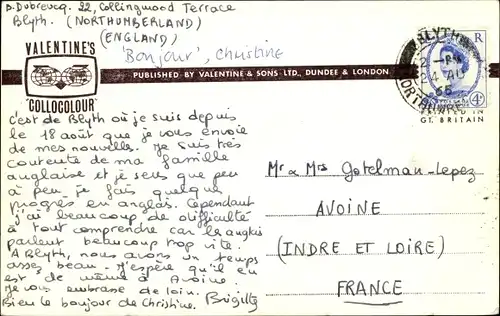 D. Dubreucq. 22, Collingwood Terrace
Blyth. (NORTHUMBERLAND)
(ENGLAND)
'Bonjour', Christine
VALENTINE'S
"COLLOCOLOUR"
PUBLISHED BY VALENTINE & SONS LTD., DUNDEE & LONDON.
PRINTED IN
GT. BRITAIN
BLYTH
2 - PM
24 AU
65
NORTHUMBERLAND
E R
4D
c'est de Blyth où je suis depuis
le 18 août que je vous envoie
de mes nouvelles. Je suis très
contente de ma famille
anglaise et je sens que peu
à peu je fais quelque
progrès en anglais. Cependant
j'ai beaucoup de difficulté
à tout comprendre car les anglais
parlent beaucoup trop vite.
A Blyth, nous avons un temps
assez beau. J'espère qu'il en
est de même à Avoine.
Je vous embrasse de loin.
Bien le bonjour de Christine. Brigitte
Mr & Mrs Gotelman-Lepez
AVOINE
(INDRE ET LOIRE)
FRANCE